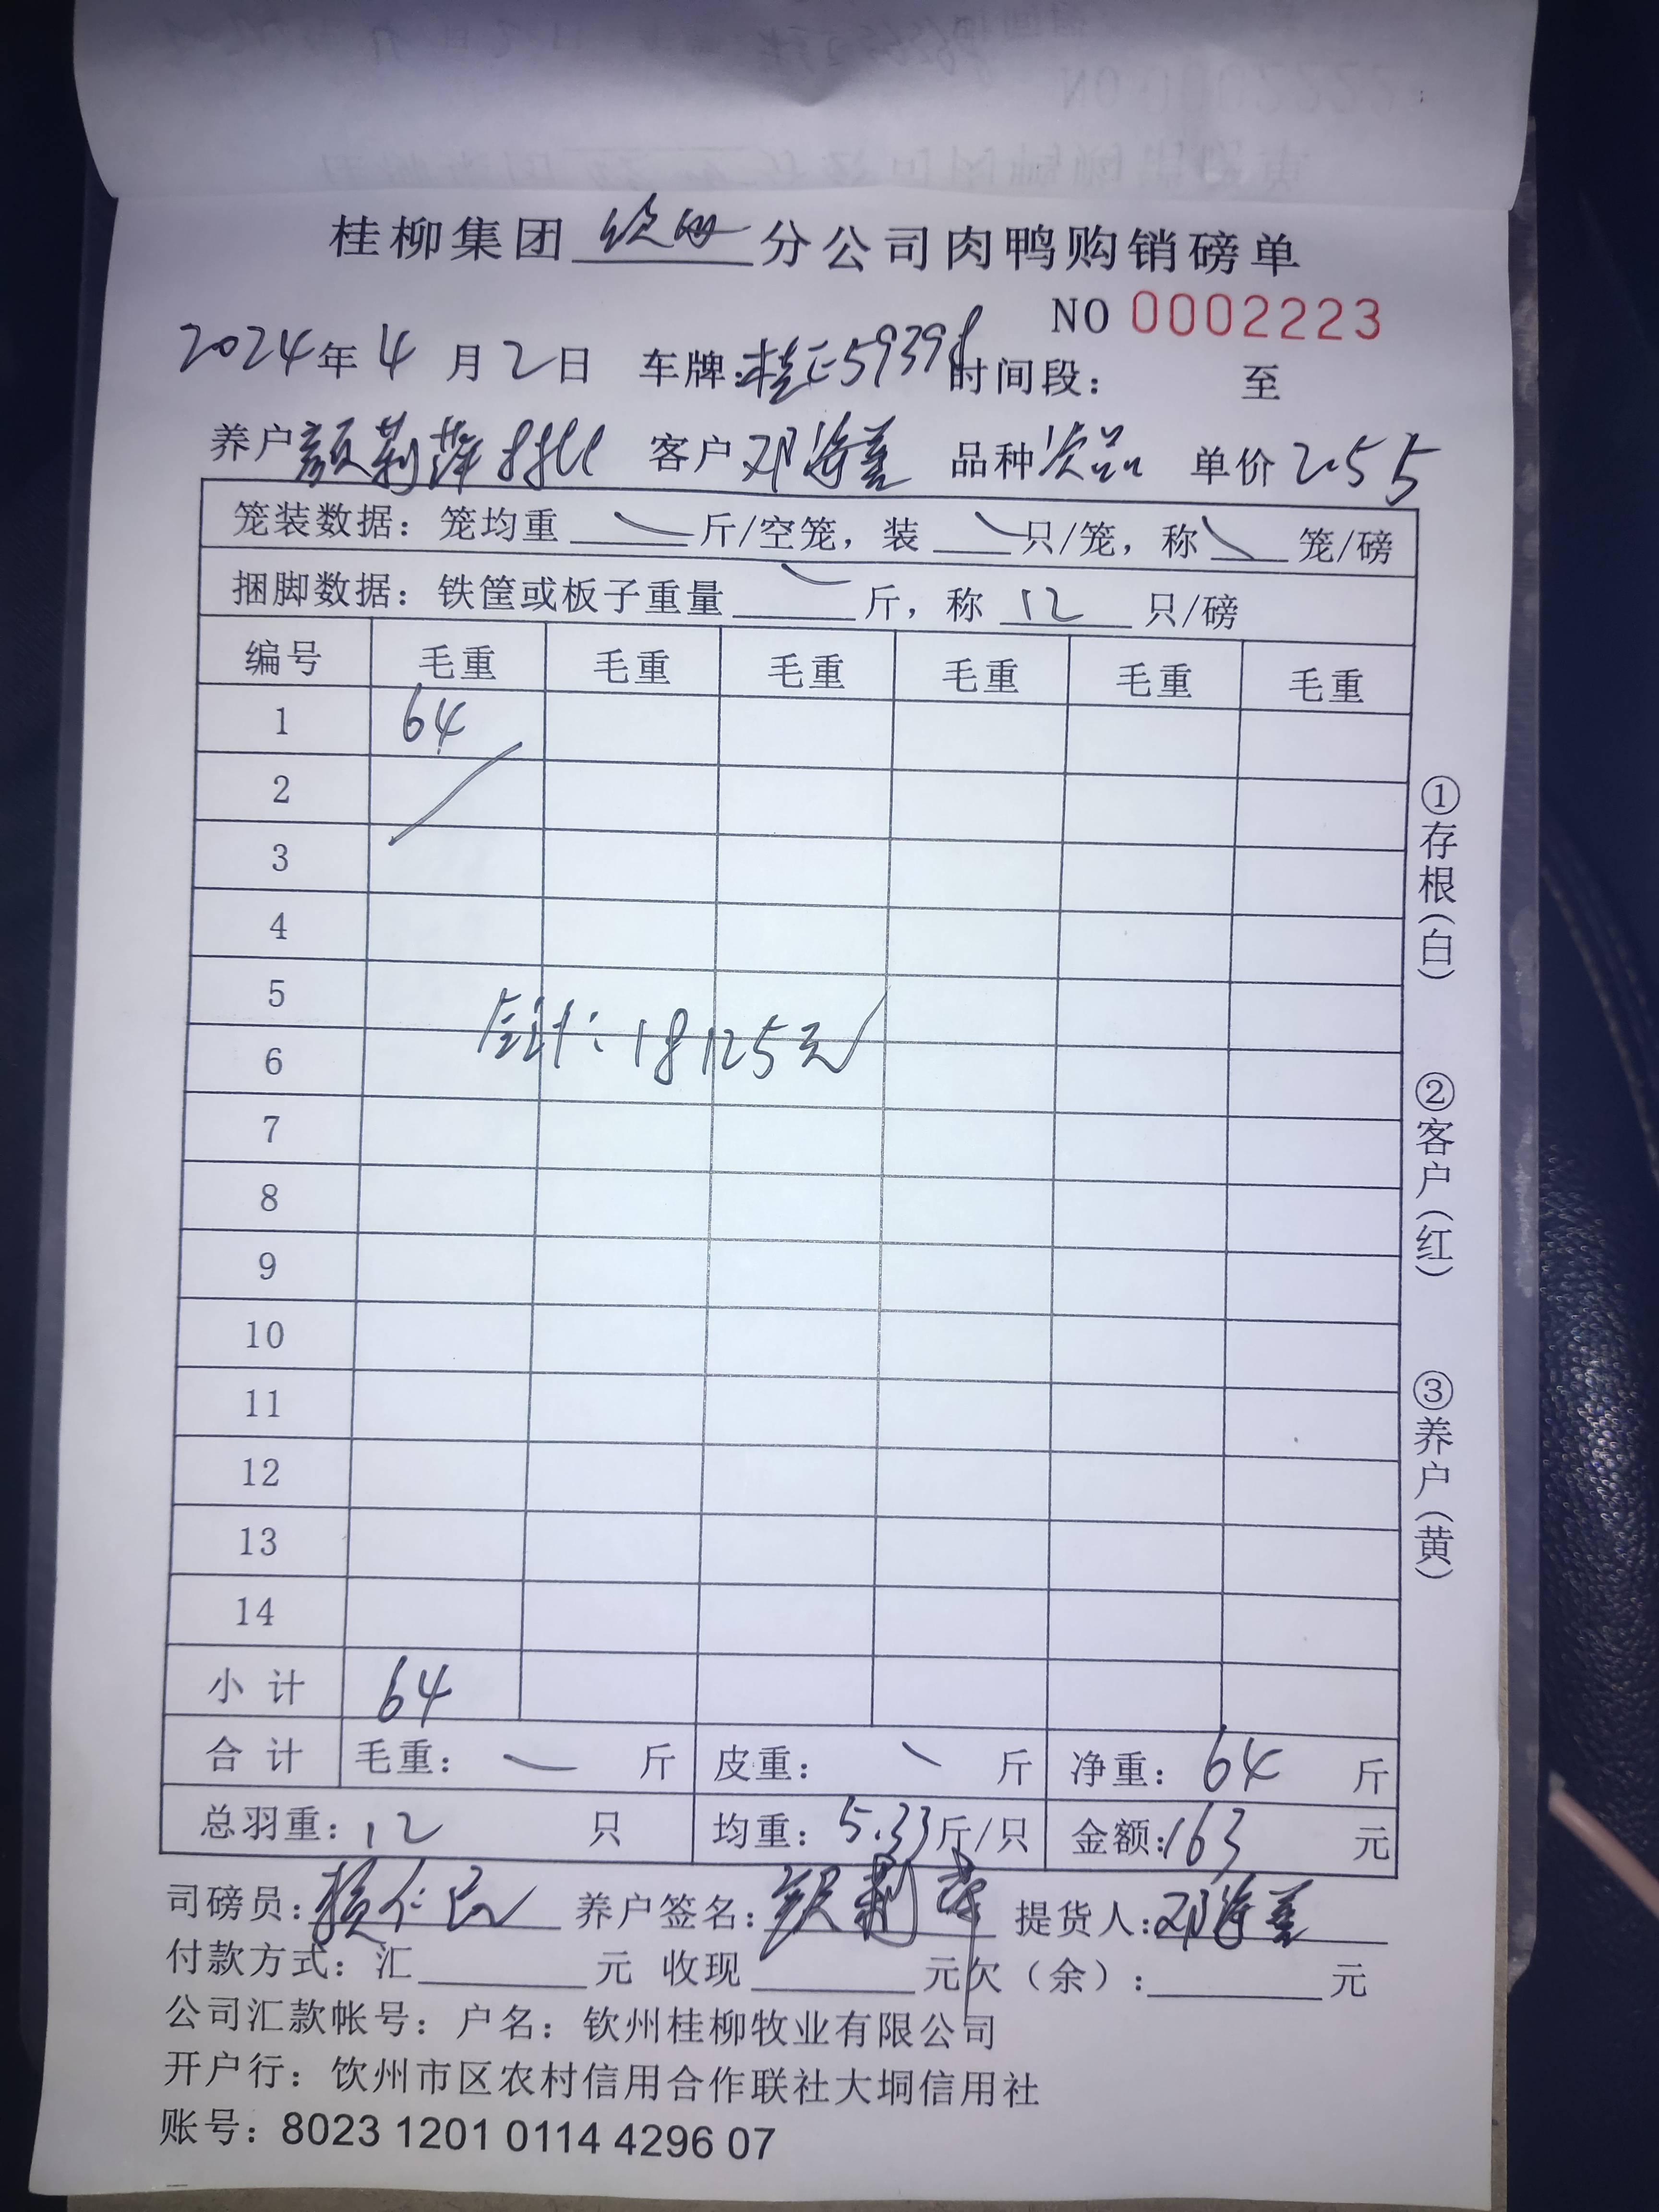 桂柳集团 钦州 分公司肉鸭购销磅单
NO 0002223
2024年4月2日 车牌: 时间段: 至
养户 颜莉萍 客户 邓海善 品种 次品 单价 2.55
笼装数据: 笼均重 斤/空笼, 装 只/笼, 称 笼/磅
捆脚数据: 铁筐或板子重量 斤, 称 12 只/磅
编号 毛重 毛重 毛重 毛重 毛重 毛重
1 64
2
3
4
5
合计: 18125元
6
7
8
9
10
11
12
13
14
小计 64
合计 毛重: 斤 皮重: 斤 净重: 64 斤
总羽重: 12 只 均重: 5.33斤/只 金额: 163 元
司磅员: 养户签名: 颜莉萍 提货人: 邓海善
付款方式: 汇 元 收现 元欠(余): 元
公司汇款帐号: 户名: 钦州桂柳牧业有限公司
开户行: 钦州市区农村信用合作联社大垌信用社
账号: 8023 1201 0114 4296 07
①存根(白)
②客户(红)
③养户(黄)